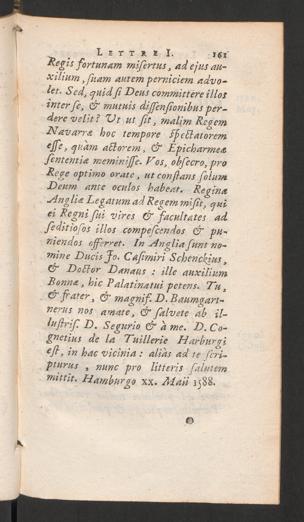 LETTRE I. 161
Regis fortunam misertus, ad ejus au-
xilium, suam autem perniciem advo-
let. Sed, quid si Deus committere illos
inter se, & mutuis dissensionibus per-
dere velit? Ut ut sit, malim Regem
Navarræ hoc tempore spectatorem
esse, quàm actorem, & Epicharmeæ
sententiæ meminisse. Vos, obsecro, pro
Rege optimo orate, ut constans solum
Deum ante oculos habeat. Reginæ
Angliæ Legatum ad Regem misit, qui
ei Regni sui vires & facultates ad
seditiosos illos compescendos & pu-
niendos offerret. In Anglia sunt no-
mine Ducis Jo. Casimiri Schenckius,
& Doctor Danaus : ille auxilium
Bonnæ, hic Palatinatui petens. Tu,
& frater, & magnif. D. Baumgart-
nerus nos amate, & salvete ab il-
lustriss. D. Segurio & à me. D. Co-
gnetius de la Tuillerie Harburgi
est, in hac vicinia : aliàs ad te scri-
pturus, nunc pro litteris salutem
mittit. Hamburgo xx. Maii 1588.